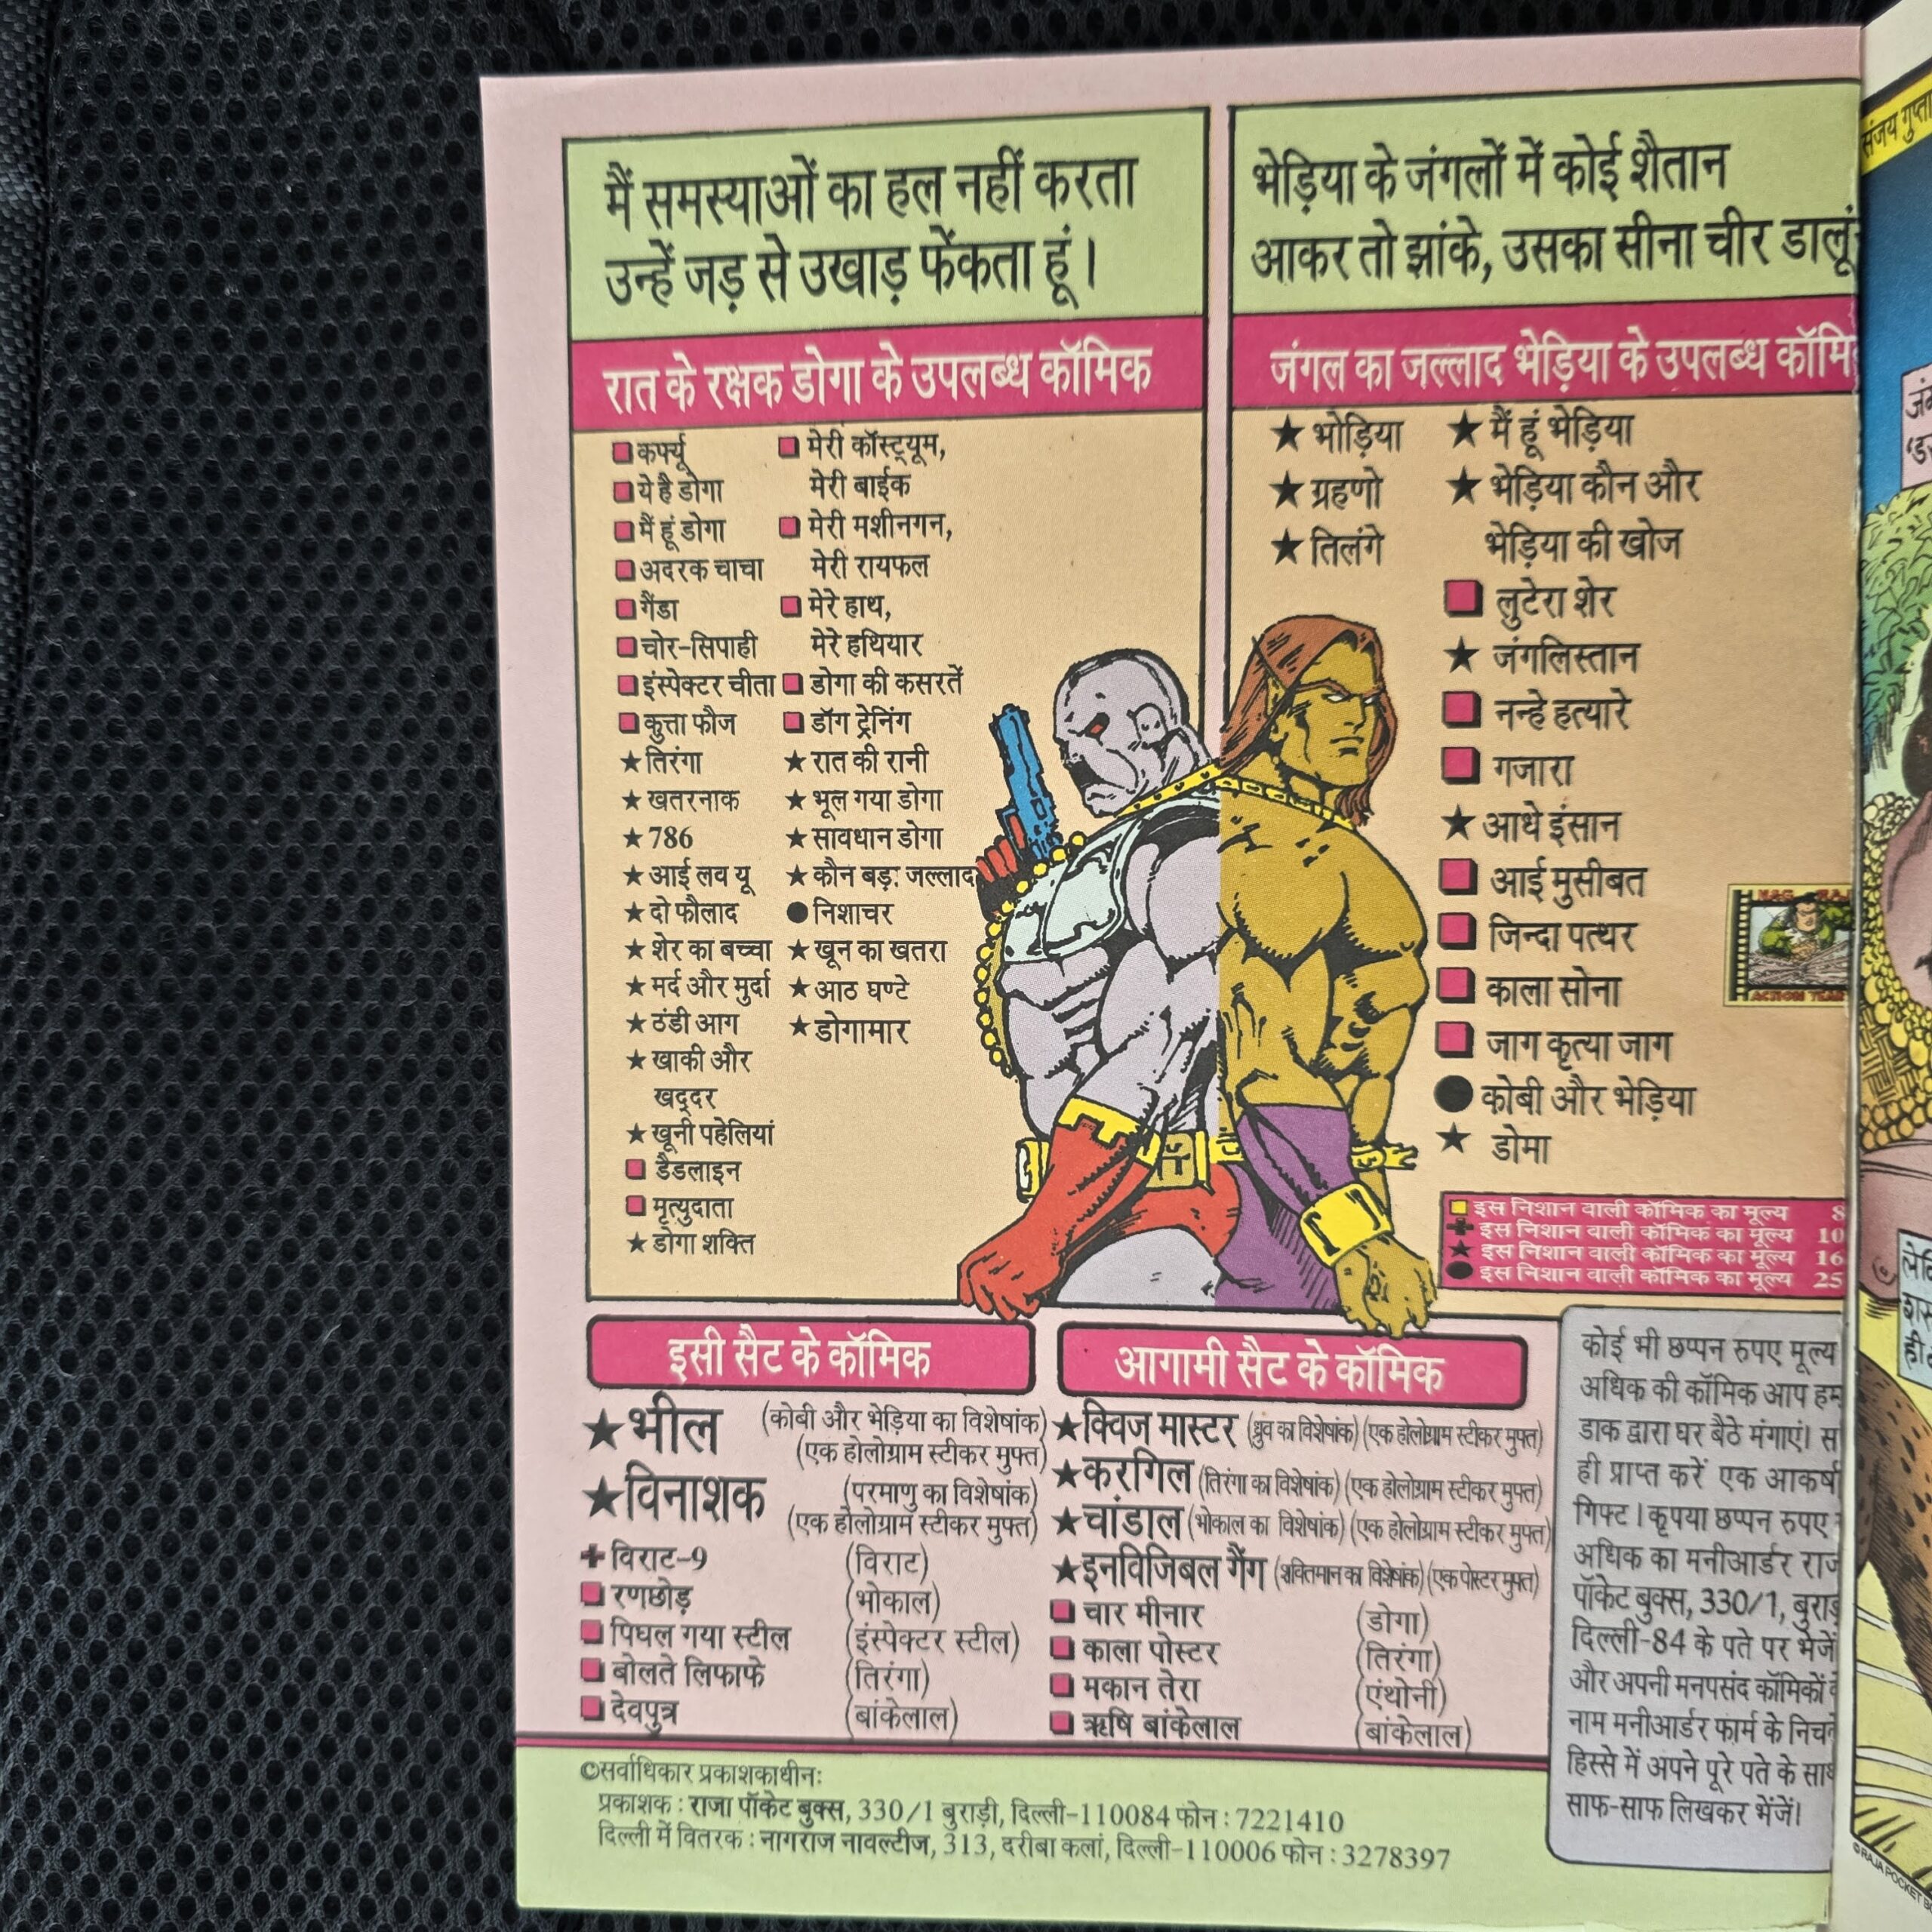 मैं समस्याओं का हल नहीं करता
उन्हें जड़ से उखाड़ फेंकता हूं।
रात के रक्षक डोगा के उपलब्ध कॉमिक
कर्फ्यू
ये है डोगा
मैं हूं डोगा
अदरक चाचा
गैंडा
चोर-सिपाही
इंस्पेक्टर चीता
कुत्ता फौज
★ तिरंगा
★ खतरनाक
★ 786
★ आई लव यू
★ दो फौलाद
★ शेर का बच्चा
★ मर्द और मुर्दा
★ ठंडी आग
★ खाकी और
खद्दर
★ खूनी पहेलियां
डैडलाइन
मृत्युदाता
★ डोगा शक्ति
मेरी कॉस्ट्यूम,
मेरी बाईक
मेरी मशीनगन,
मेरी रायफल
मेरे हाथ,
मेरे हथियार
डोगा की कसरतें
डॉग ट्रेनिंग
★ रात की रानी
★ भूल गया डोगा
★ सावधान डोगा
★ कौन बड़ा जल्लाद
● निशाचर
★ खून का खतरा
★ आठ घण्टे
★ डोगामार
भेड़िया के जंगलों में कोई शैतान
आकर तो झांके, उसका सीना चीर डालूं
जंगल का जल्लाद भेड़िया के उपलब्ध
★ भोड़िया
★ ग्रहणो
★ तिलंगे
★ मैं हूं भेड़िया
★ भेड़िया कौन और
भेड़िया की खोज
लुटेरा शेर
★ जंगलिस्तान
नन्हे हत्यारे
गजारा
★ आधे इंसान
आई मुसीबत
जिन्दा पत्थर
काला सोना
जाग कृत्या जाग
● कोबी और भेड़िया
★ डोमा
ACTION YEAR
इस निशान वाली कॉमिक का मूल्य 8
इस निशान वाली कॉमिक का मूल्य 10
★ इस निशान वाली कॉमिक का मूल्य 16
● इस निशान वाली कॉमिक का मूल्य 25
इसी सैट के कॉमिक
★ भील (कोबी और भेड़िया का विशेषांक)
(एक होलोग्राम स्टीकर मुफ्त)
★ विनाशक (परमाणु का विशेषांक)
(एक होलोग्राम स्टीकर मुफ्त)
विराट-9 (विराट)
रणछोड़ (भोकाल)
पिघल गया स्टील (इंस्पेक्टर स्टील)
बोलते लिफाफे (तिरंगा)
देवपुत्र (बांकेलाल)
आगामी सैट के कॉमिक
★ क्विज मास्टर (ध्रुव का विशेषांक) (एक होलोग्राम स्टीकर मुफ्त)
★ करगिल (तिरंगा का विशेषांक) (एक होलोग्राम स्टीकर मुफ्त)
★ चांडाल (भोकाल का विशेषांक) (एक होलोग्राम स्टीकर मुफ्त)
★ इनविजिबल गैंग (शक्तिमान का विशेषांक) (एक पोस्टर मुफ्त)
चार मीनार (डोगा)
काला पोस्टर (तिरंगा)
मकान तेरा (एंथोनी)
ऋषि बांकेलाल (बांकेलाल)
कोई भी छप्पन रुपए मूल्य
अधिक की कॉमिक आप
डाक द्वारा घर बैठे मंगाएं।
ही प्राप्त करें एक
गिफ्ट। कृपया छप्पन रुपए
अधिक का मनीआर्डर
पॉकेट बुक्स, 330/1,
दिल्ली-84 के पते पर भेजें
और अपनी मनपसंद कॉमिकों
नाम मनीआर्डर फार्म के
हिस्से में अपने पूरे पते के
साफ-साफ लिखकर भेंजें।
©सर्वाधिकार प्रकाशकाधीनः
प्रकाशक : राजा पॉकेट बुक्स, 330/1 बुराड़ी, दिल्ली-110084 फोन : 7221410
दिल्ली में वितरक : नागराज नावल्टीज, 313, दरीबा कलां, दिल्ली-110006 फोन : 3278397
संजय गुप्ता
©RAJA POCKET